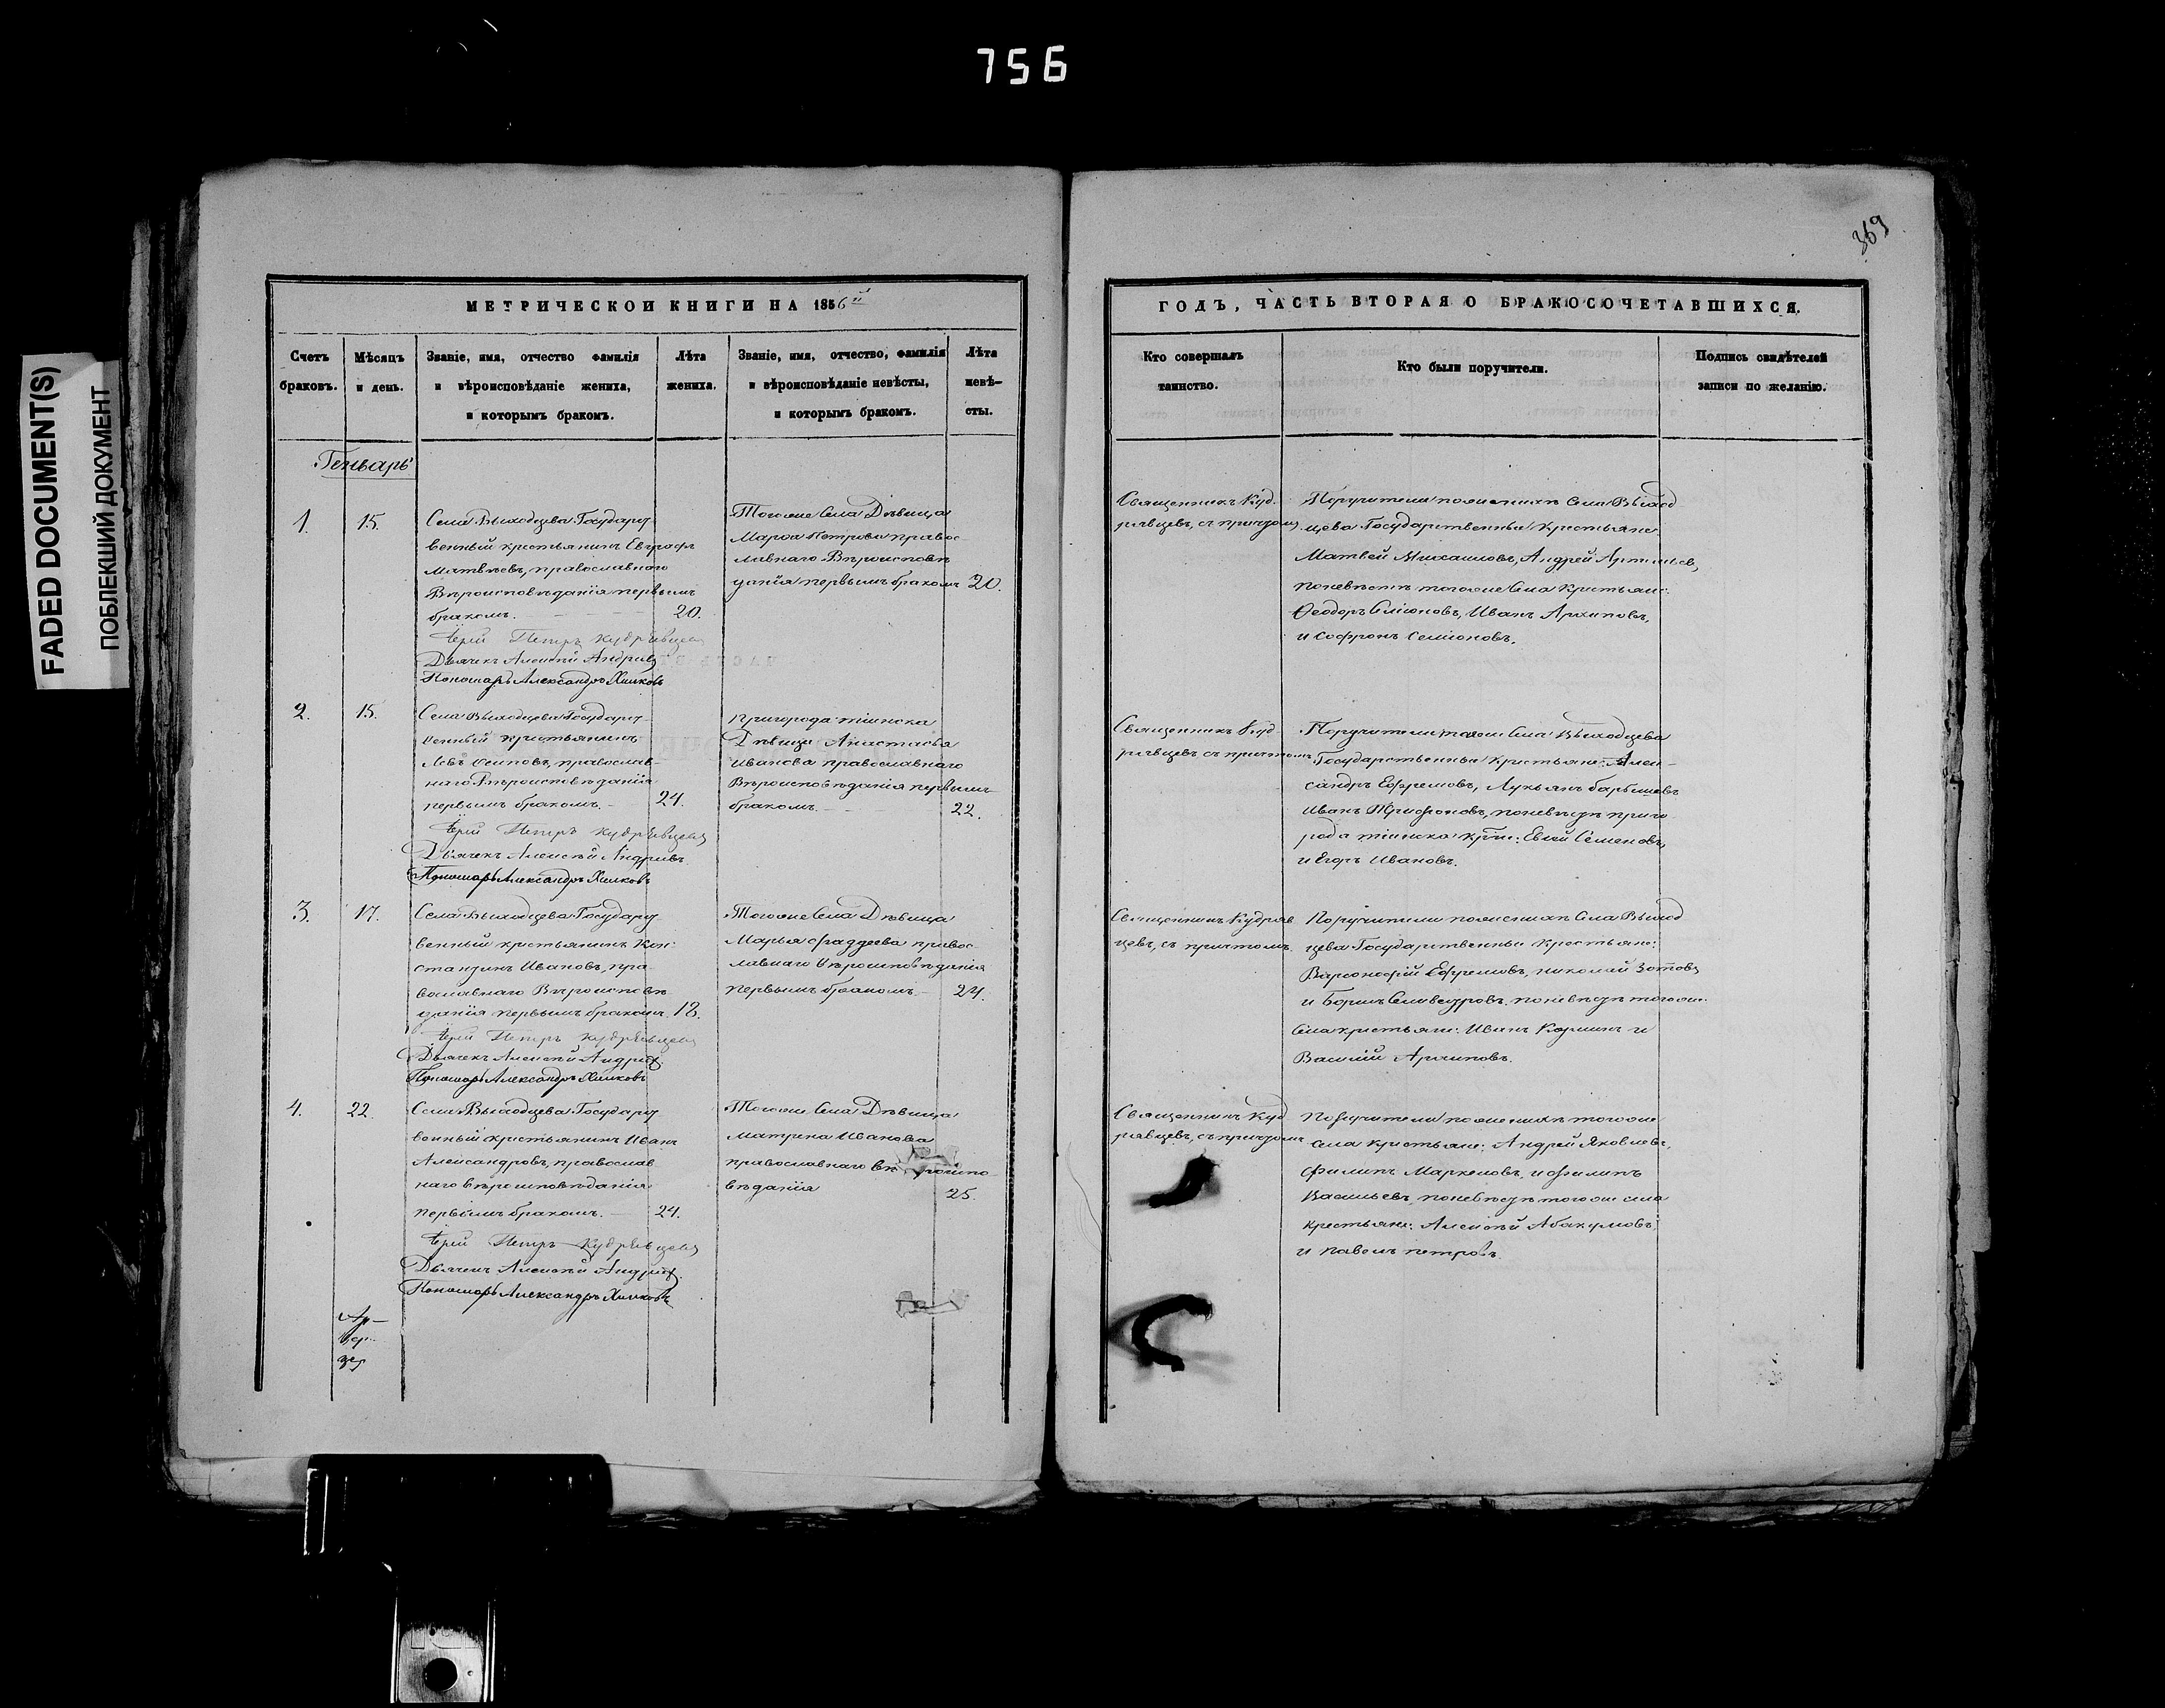 756
FADED DOCUMENT(S)
ПОБЛЕКШИЙ ДОКУМЕНТ
369
МЕТРИЧЕСКОЙ КНИГИ НА 1856й
Счетъ браковъ.
Мѣсяцъ и день.
Званіе, имя, отчество фамилія
и вѣроисповѣданіе жениха,
и которымъ бракомъ.
Лѣта жениха.
Званіе, имя, отчество, фамилія
и вѣроисповѣданіе невѣсты,
и которымъ бракомъ.
Лѣта невѣ-
сты.
ГОДЪ, ЧАСТЬ ВТОРАЯ О БРАКОСОЧЕТАВШИХСЯ.
Кто совершалъ
таинство.
Кто были поручители.
Подпись свидѣтелей
записи по желанію.
Генварь
1.
15.
Села Выходцева Государст
венный крестьянинъ Евграфъ
Матвѣевъ, православнаго
Вѣроисповѣданія первымъ
бракомъ.
20.
Іерей Петръ Кудрявцевъ
Дьячекъ Алексѣй
Пономарь Александръ Хилковъ
Тогоже Села Дѣвица
Марѳа Петрова правос
лавнаго Вѣроисповѣ
данія первымъ бракомъ
20.
Священникъ Куд
рявцевъ, съ причтомъ
Поручители по женихѣ Села Выход
цева Государственные Крестьяне:
Матвей Михаиловъ, Андрей
по невѣстѣ тогоже Села Крестьяне:
Ѳеодоръ Симіоновъ, Иванъ Архиповъ,
и Софронъ Семіоновъ.
2.
15.
Села Выходцева Государст
венный крестьянинъ
Левъ Осиповъ, православ
наго Вѣроисповѣданія
первымъ бракомъ.
24.
Іерей Петръ Кудрявцевъ
Дьячекъ Алексѣй
Пономарь Александръ Хилковъ
Пригорода Тіинска
Дѣвица Анастасья
Иванова православнаго
Вѣроисповѣданія первымъ
бракомъ.
22.
Священникъ Куд
рявцевъ съ причтомъ
Поручители Села Выходцева
Государственные Крестьяне: Алек
сандръ Ефремовъ, Лукьянъ
Иванъ Трифоновъ, по невѣстѣ приго
рода Тіинска Семеновъ,
и Егоръ Ивановъ.
3.
17.
Села Выходцева Государст
венный крестьянинъ Кон
стантинъ Ивановъ, пра
вославнаго Вѣроисповѣ
данія первымъ бракомъ.
18.
Іерей Петръ Кудрявцевъ
Дьячекъ Алексѣй
Пономарь Александръ Хилковъ
Тогоже Села Дѣвица
Марья Фаддеева правос
лавнаго Вѣроисповѣданія
первымъ бракомъ.
24.
Священникъ Кудряв
цевъ, съ причтомъ
Поручители по женихѣ Села Выход
цева Государственные Крестьяне:
Варсонофій Ефремовъ, Николай Зотовъ
и Борисъ Селиверстровъ, по невѣстѣ тогоже
Села крестьяне: Иванъ и
Василій Архиповъ.
4.
22.
Села Выходцева Государст
венный крестьянинъ Иванъ
Александровъ, православ
наго вѣроисповѣданія
первымъ бракомъ.
24.
Іерей Петръ Кудрявцевъ
Дьячекъ Алексѣй
Пономарь Александръ Хилковъ
Тогоже Села Дѣвица
Матрена Иванова
православнаго вѣроиспо
вѣданія
25.
Священникъ Куд
рявцевъ, съ причтомъ
Поручители по женихѣ тогоже
села крестьяне: Андрей Яковлевъ,
Филипъ Маркеловъ, и Филипъ
Васильевъ, по невѣстѣ тогоже села
крестьяне: Алексѣй Абакумовъ,
и Павелъ Петровъ.